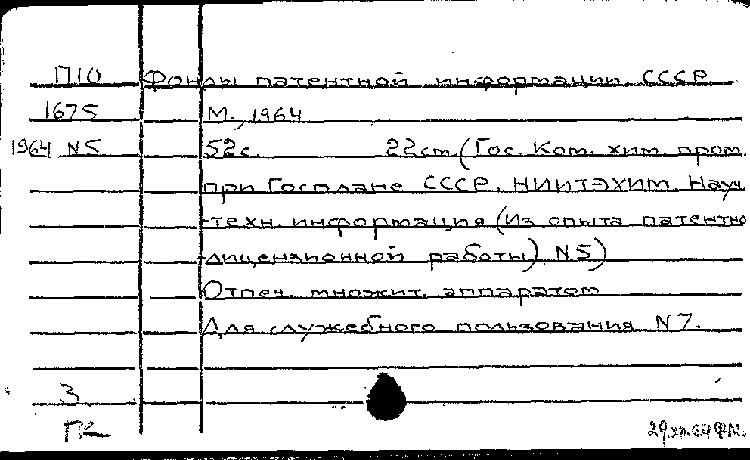 П10 Фонды патентной информации СССР
1675 М., 1964
1964 N5 52с. 22см (Гос. Ком. хим пром.
при Госплане СССР. НИИТЭХИМ. Науч.
-техн. информация (Из опыта патентно
-лицензионной работы) N5)
Отпеч. множит. аппаратом
Для служебного пользования N7.
3